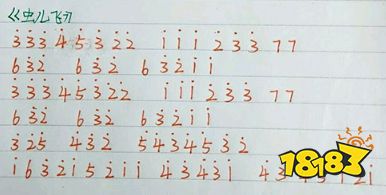 《虫儿飞》
3̇3̇3̇ 4̇ 5̇ 3̇ 2̇2̇ 1̇ 1̇ 1̇ 2̇ 3̇ 3̇ 77
6 3̇2̇ 6 3̇2̇ 6 3̇2̇1̇1̇
3̇3̇3̇4̇5̇3̇2̇2̇ 1̇1̇1̇2̇3̇3̇ 77
6 3̇2̇ 6 3̇2̇ 6 3̇2̇1̇1̇
3̇2̇5̇ 4̇3̇2̇ 5̇4̇3̇4̇5̇3̇2̇
1̇63̇2̇1̇5̇2̇1̇1̇ 4̇3̇4̇3̇1̇
18183